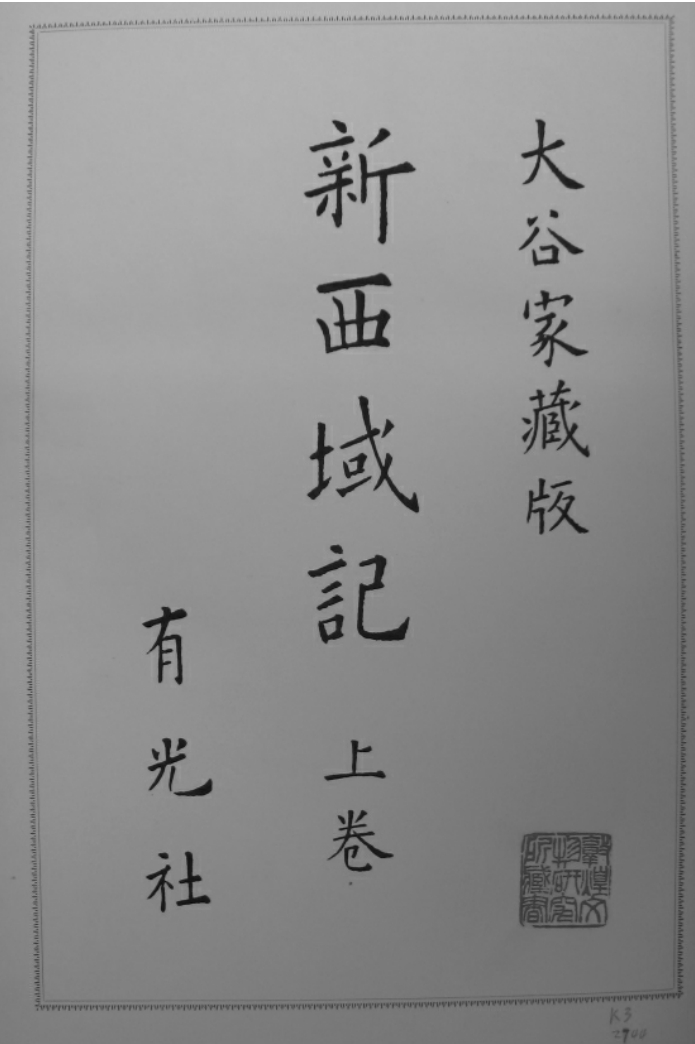 大谷家藏版
新西域記 上卷
有光社
敦煌文
物研究
所藏書
K3